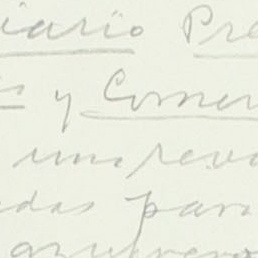 iario Pre
s y Comer
una reva
adas para